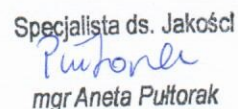 Specjalista ds. Jakości
Pułtorak
mgr Aneta Pułtorak